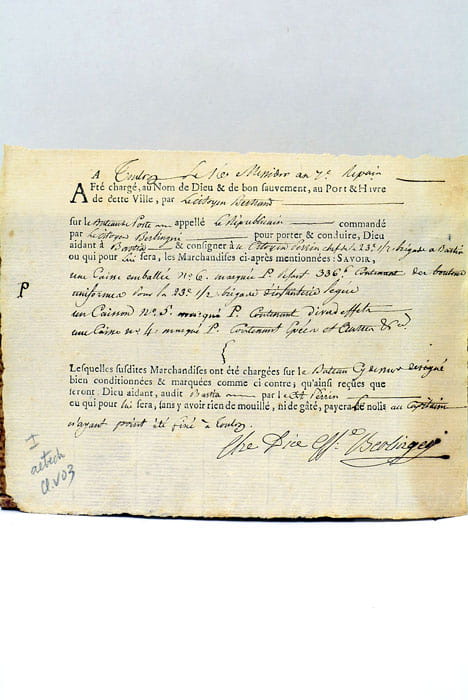 A Toulon Le 1er Messidor an 7e Repain
A Eté chargé, au Nom de Dieu & de bon sauvement, au Port & Havre
de cette Ville, par Le Citoyen Bertrand
sur le Bateau de Poste appellé Le Républicain commandé
par Le Citoyen pour porter & conduire, Dieu
aidant à Bastia & consigner à le Citoyen Perrin chef de la 23e 1/2 brigade a Bastia
ou qui pour lui sera, les Marchandises ci-après mentionnées : SAVOIR,
une Caisse emballée No. 6. marquée P. 336 Contenant des boutons
uniformes pour la 23e 1/2 brigade d'infanterie légère
un Caisson No. 5. marqué P. Contenant divers effets
une Caisse No. 4. marqué P. Contenant &c.
P
Lesquelles susdites Marchandises ont été chargées sur le Bateau
bien conditionnées & marquées comme ci contre ; qu'ainsi reçues que
seront, Dieu aidant, audit Bastia par le Ct Perrin
ou qui pour lui sera, sans y avoir rien de mouillé, ni de gâté, payera le nolis au Capitaine
n'ayant point été fixé à Toulon